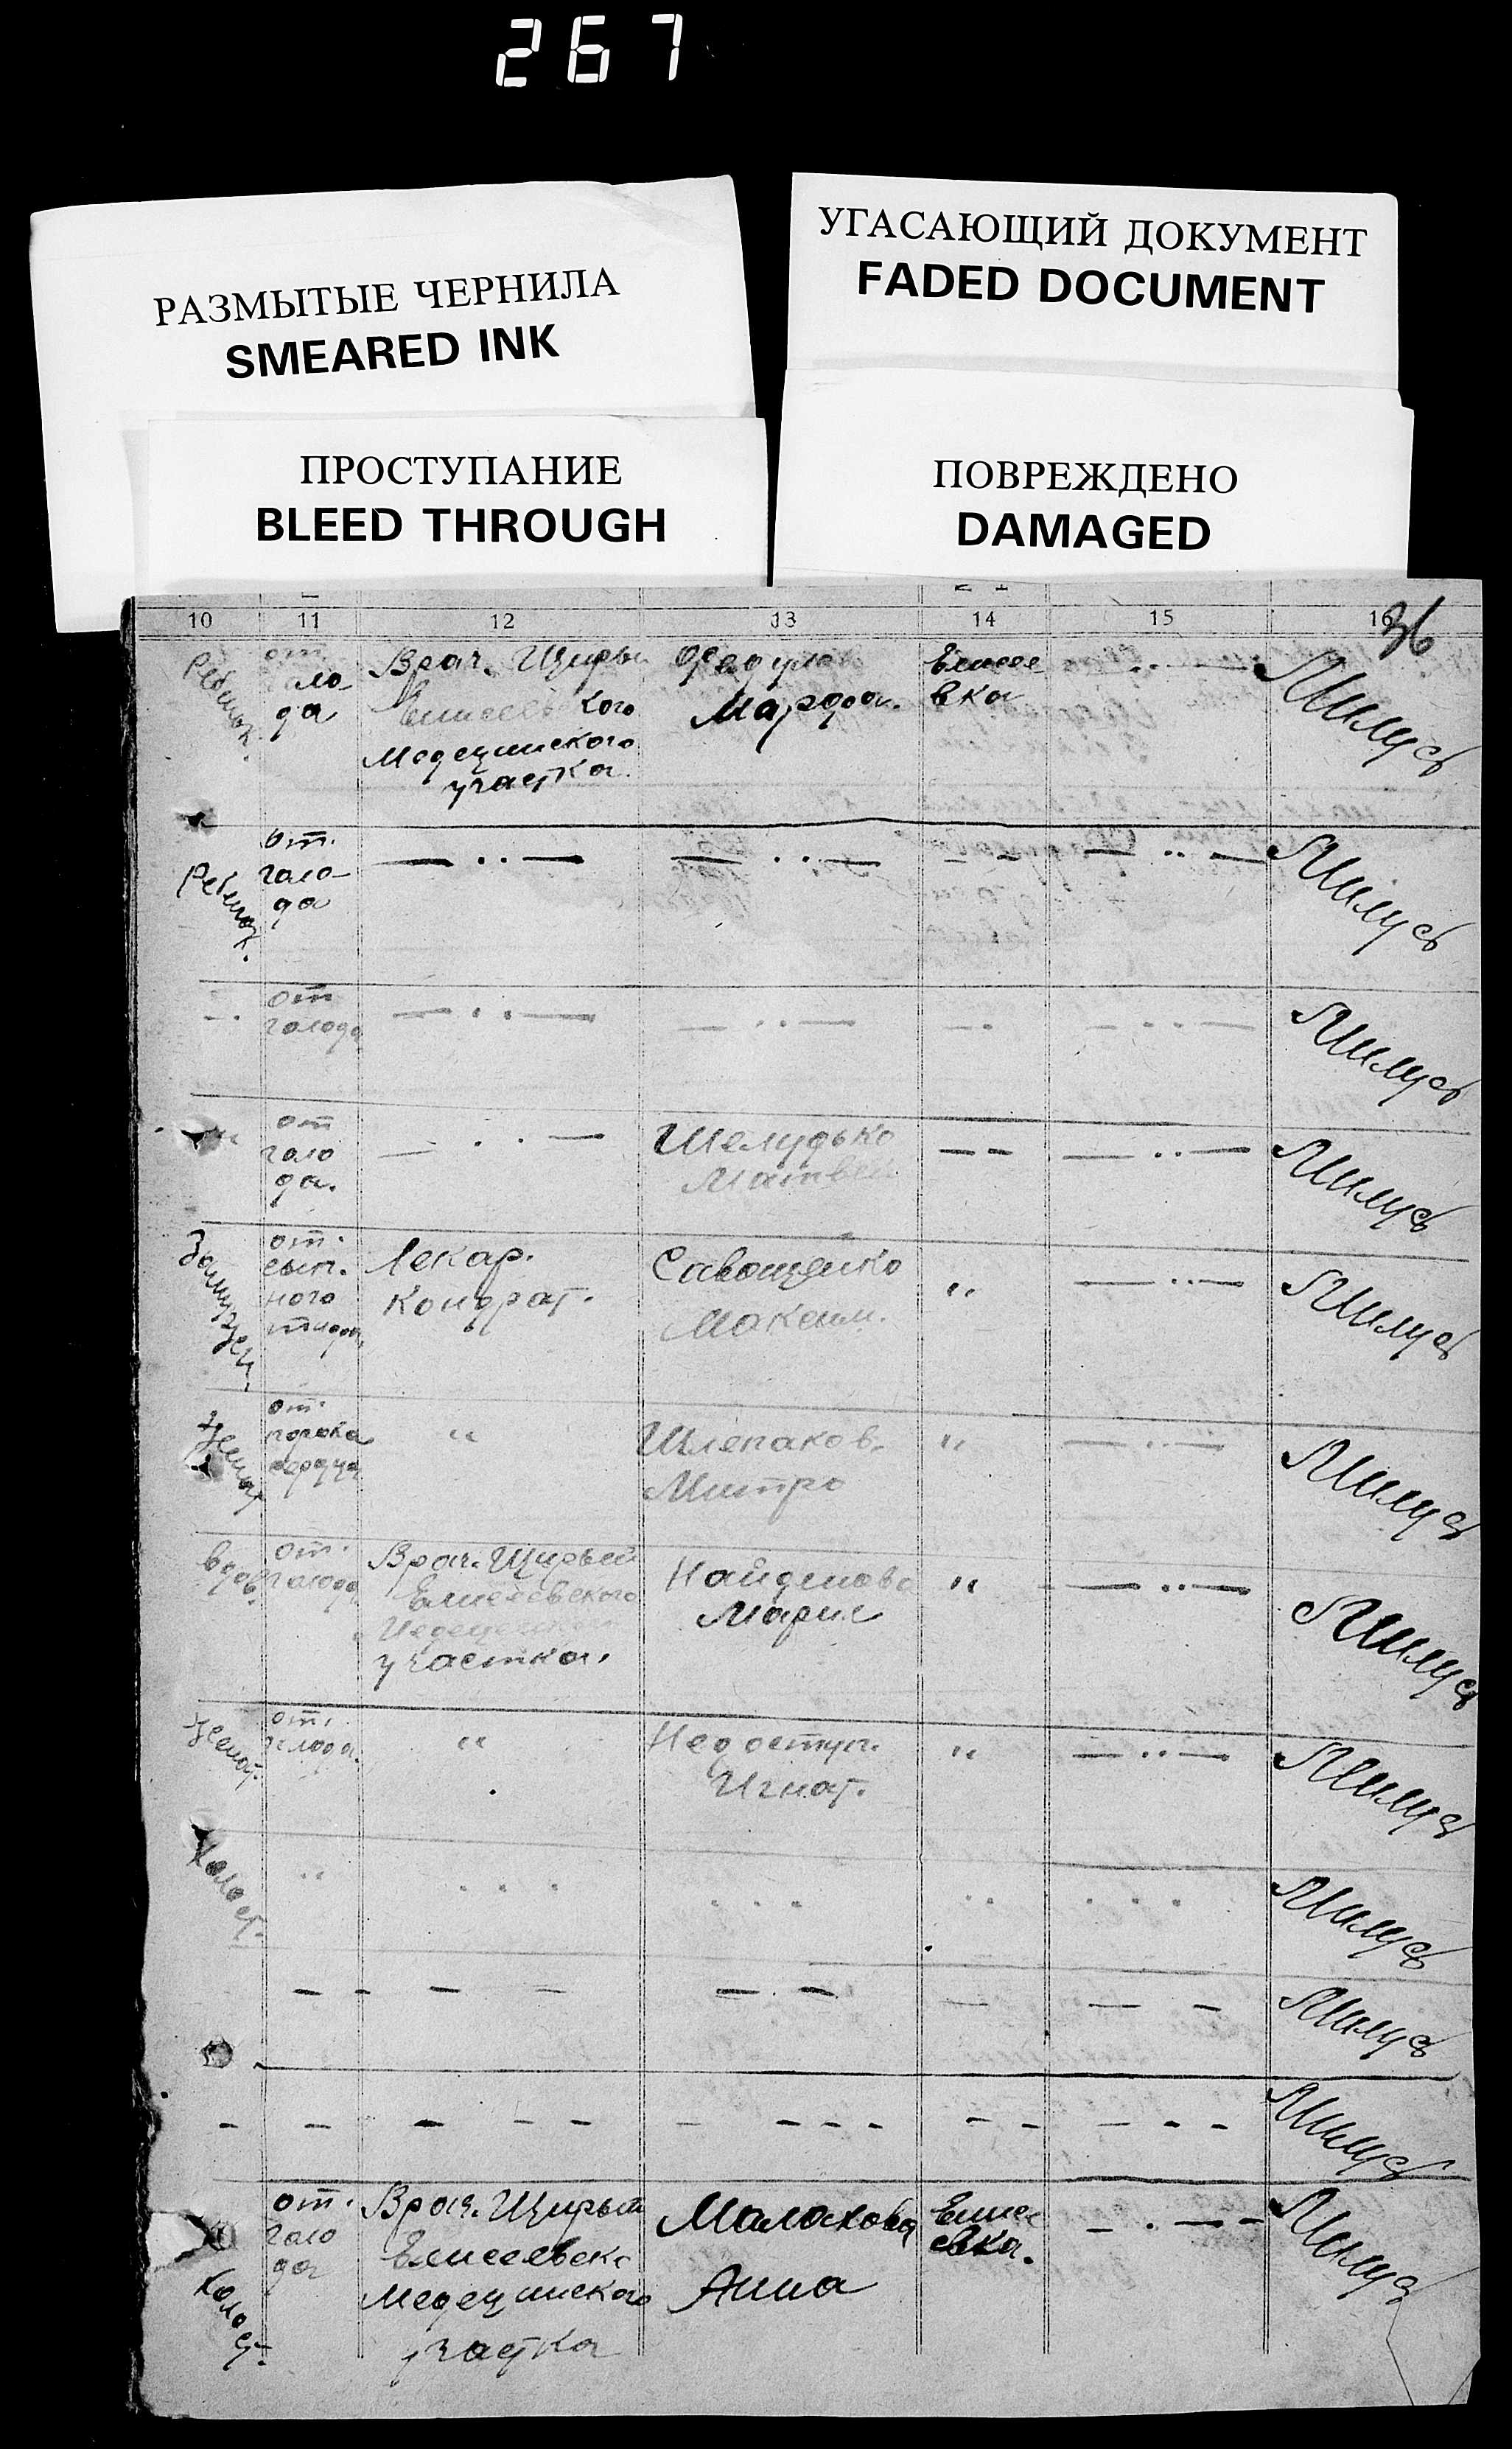 267
РАЗМЫТЫЕ ЧЕРНИЛА
SMEARED INK
УГАСАЮЩИЙ ДОКУМЕНТ
FADED DOCUMENT
ПРОСТУПАНИЕ
BLEED THROUGH
ПОВРЕЖДЕНО
DAMAGED
10 11 12 13 14 15 16
36
Ребенок.
от
ло-
да
Врач. Щиры
Елисеевского
Медецинского
участка.
Федула
Марфа.
Елисее-
вка
— . . —
Ребенок.
от.
голо-
да
— . . —
— . . —
- -
— . . —
- .
от
голода
— . . —
— . . —
- .
- . . —
от
голо
да.
— . . —
Шелудько
Матвей
- -
— . . —
от.
сып.
ного
тифа,
Лекар.
Кондрат.
Савощенко
Максим.
"
— . . —
Женат
от.
порока
сердца
"
Шлепаков.
Митро
"
— . . —
вдов.
от.
голода
Врач. Щирый
Елисеевского
Медецинс
участка.
Найденова
Мария
"
— . . —
Женат.
от.
голода.
"
Недоступ.
Игнат.
"
— . . —
Холост.
"
. . .
. . .
. .
. . .
- -
- -
- . -
-
- -
-
-
- - -
- - - -
- - -
- - -
Холост.
от.
голо
да
Врач. Щирый
Елисеевско
Медецинского
участка
Малахова
Анна
Елисе
евка.
- . - -